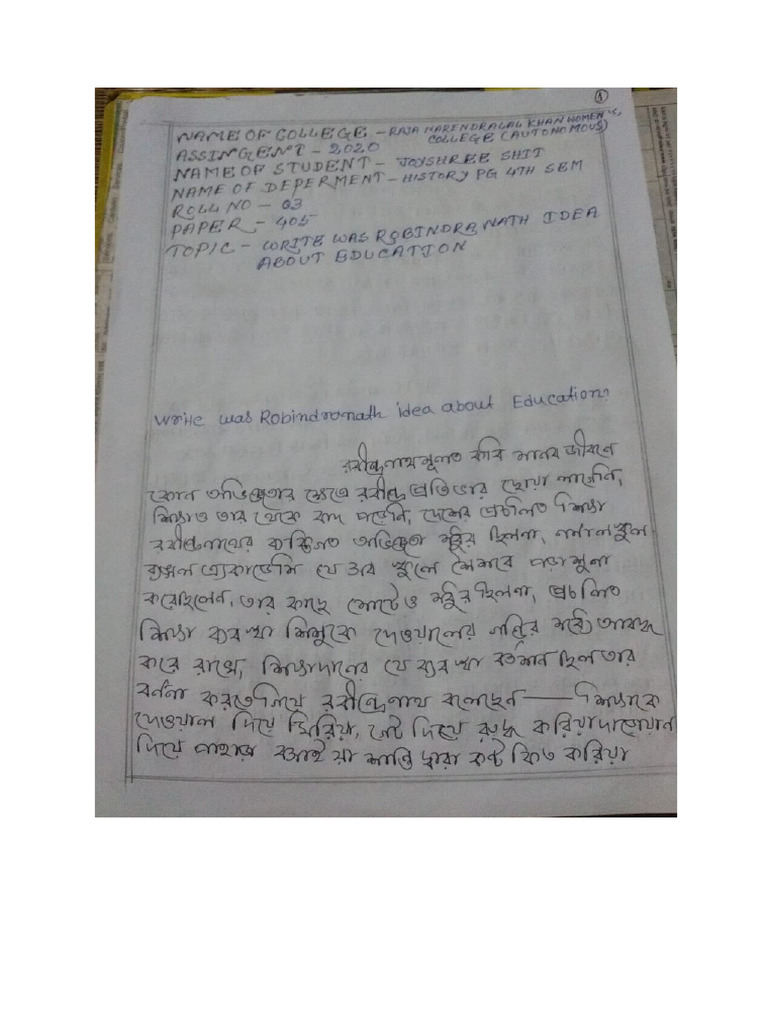 1
NAME OF COLLEGE - RAJA NARENDRALAL KHAN WOMEN'S,
COLLEGE (AUTONOMOUS)
ASSINGENT - 2020
NAME OF STUDENT - JOYSHREE SHIT
NAME OF DEPERMENT - HISTORY PG 4TH SEM
ROLL NO - 03
PAPER - 405
TOPIC - WRITE WAS ROBINDRA NATH IDEA
ABOUT EDUCATION
Write was Robindronath idea about Education?
রবীন্দ্রনাথ মূলত কবি মানব জীবনে
কোন অভিজ্ঞতার ক্ষেত্রে রবীন্দ্র প্রতিভার ছোয়া লাগেনি,
শিক্ষাও তার থেকে বাদ পড়েনি, দেশের প্রচলিত শিক্ষা
রবীন্দ্রনাথের ব্যক্তিগত অভিজ্ঞতা মধুর ছিলনা, নর্মাল স্কুল
বেঙ্গল একাডেমি যে সব স্কুলে শৈশবে পড়া শুনা
করেছিলেন, তার কাছে মোটেও মধুর ছিলনা, প্রচলিত
শিক্ষা ব্যবস্থা শিশুকে দেওয়ালের গন্ডির মধ্যে আবদ্ধ
করে রাখে, শিক্ষাদানের যে ব্যবস্থা বর্তমান ছিল তার
বর্ননা করতে গিয়ে রবীন্দ্রনাথ বলেছেন — শিক্ষাকে
দেওয়াল দিয়ে ঘিরিয়া, গেট দিয়ে রুদ্ধ করিয়া দারোয়ান
দিয়ে পাহারা বসাইয়া শাস্তি দ্বারা কন্টকিত করিয়া